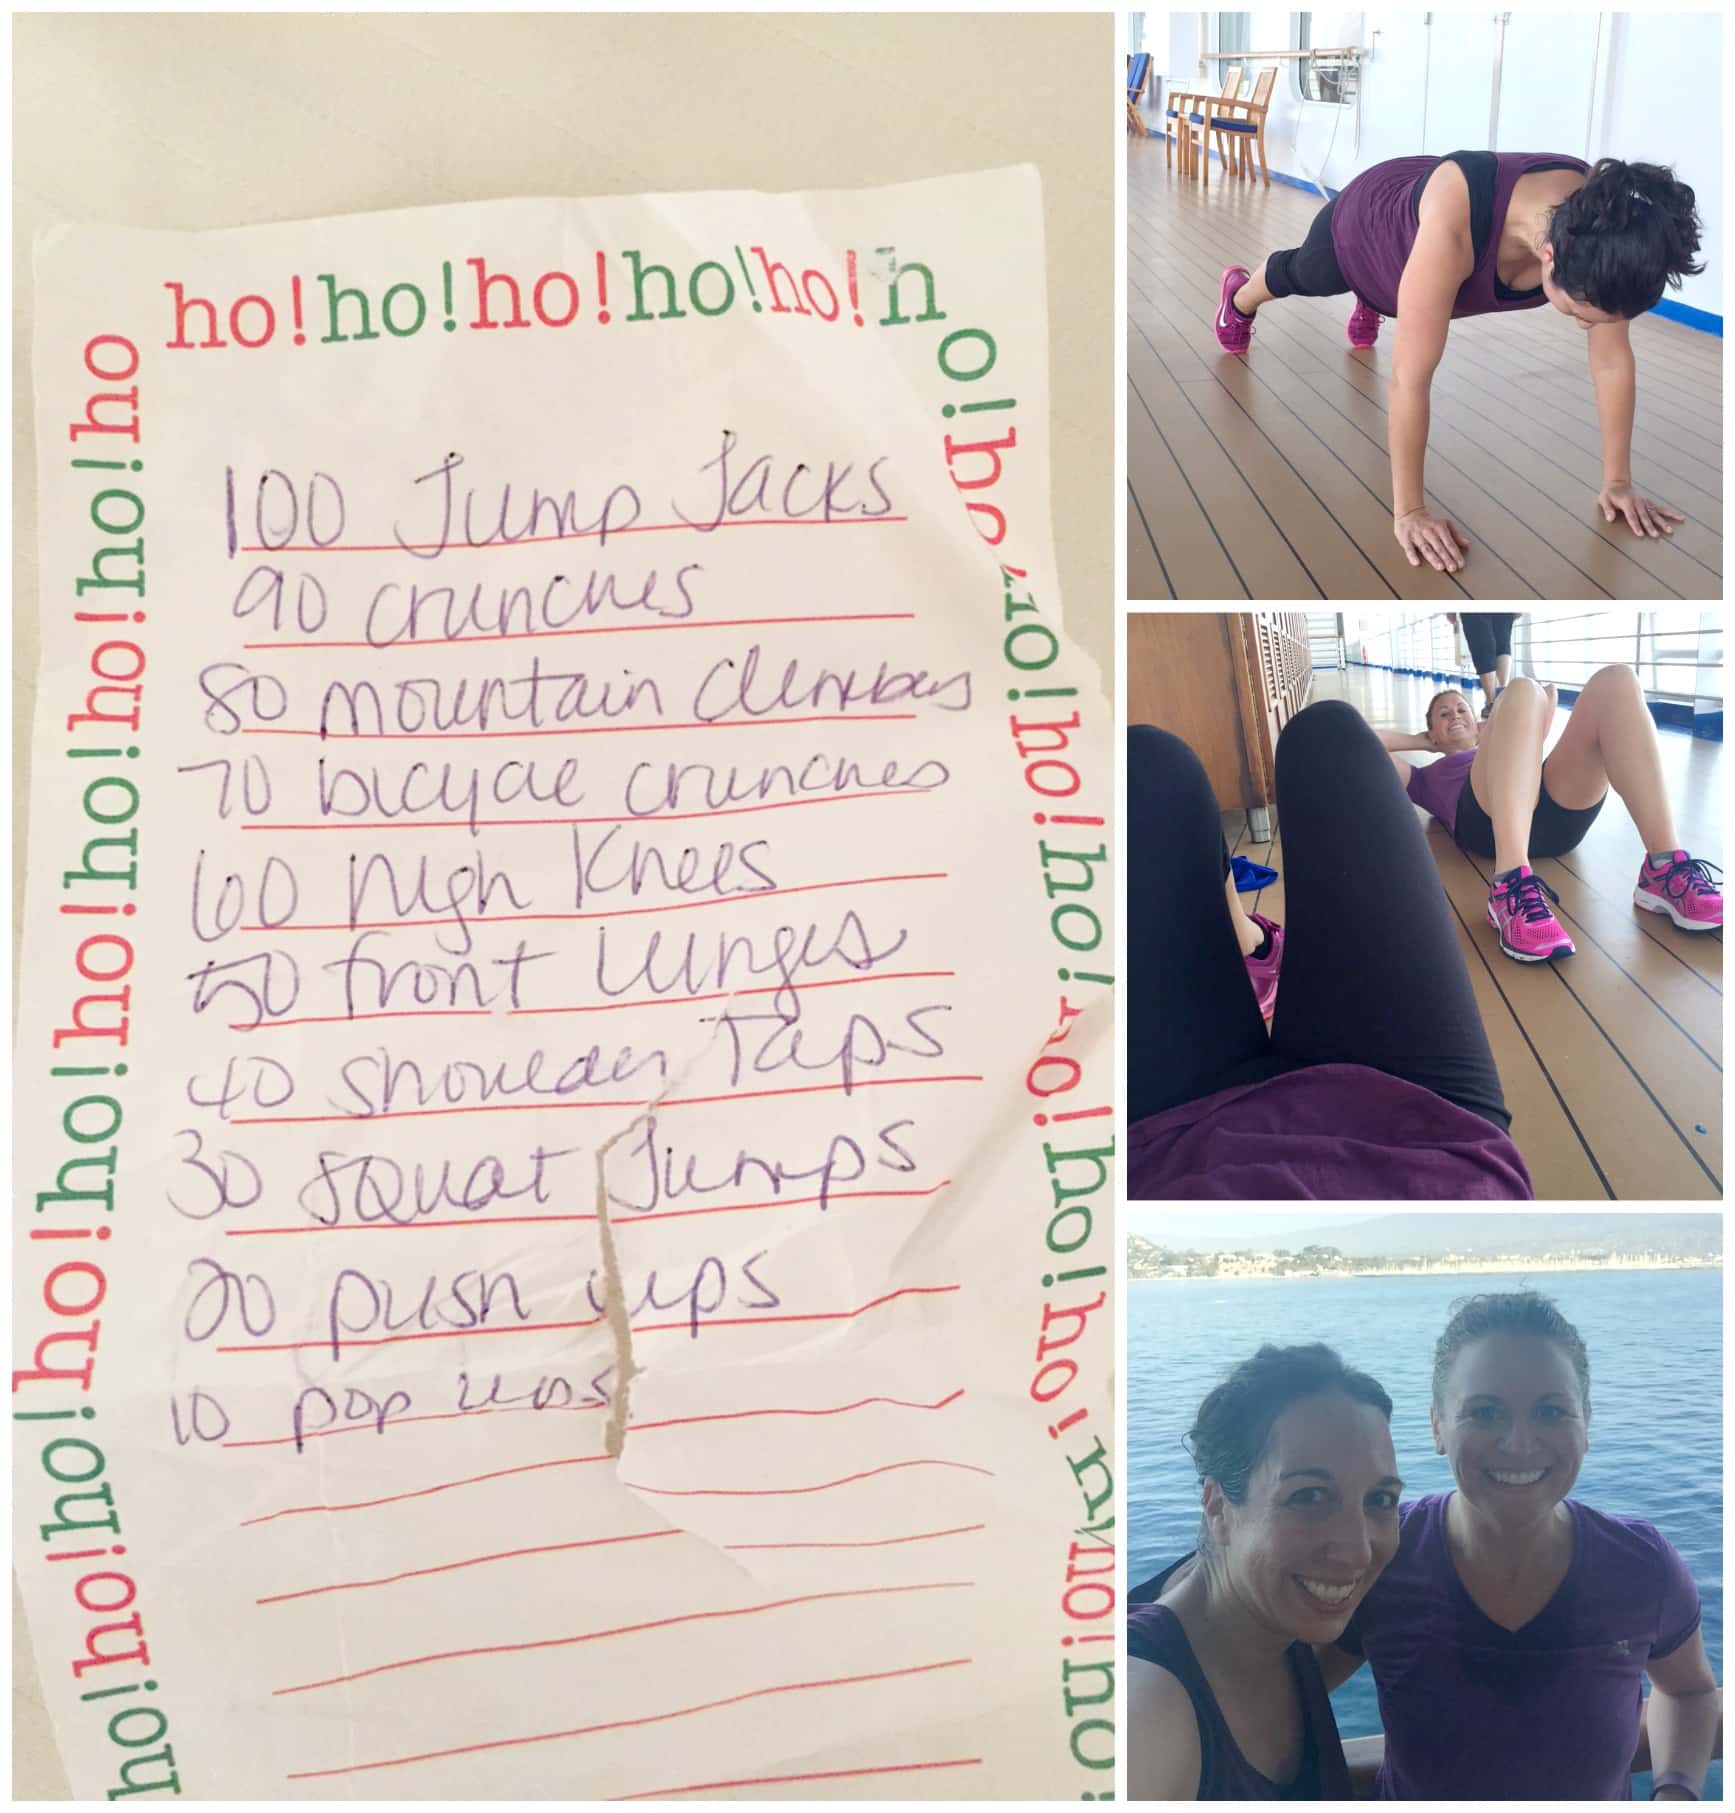 ho!ho!ho!ho!ho!h
100 Jump Jacks
90 crunches
80 mountain climbers
70 bicycle crunches
60 high knees
50 front lunges
40 shoulder Taps
30 squat Jumps
20 push ups
10 pop ups
ho!ho!ho!ho!ho!ho!ho!ho!ho!ho